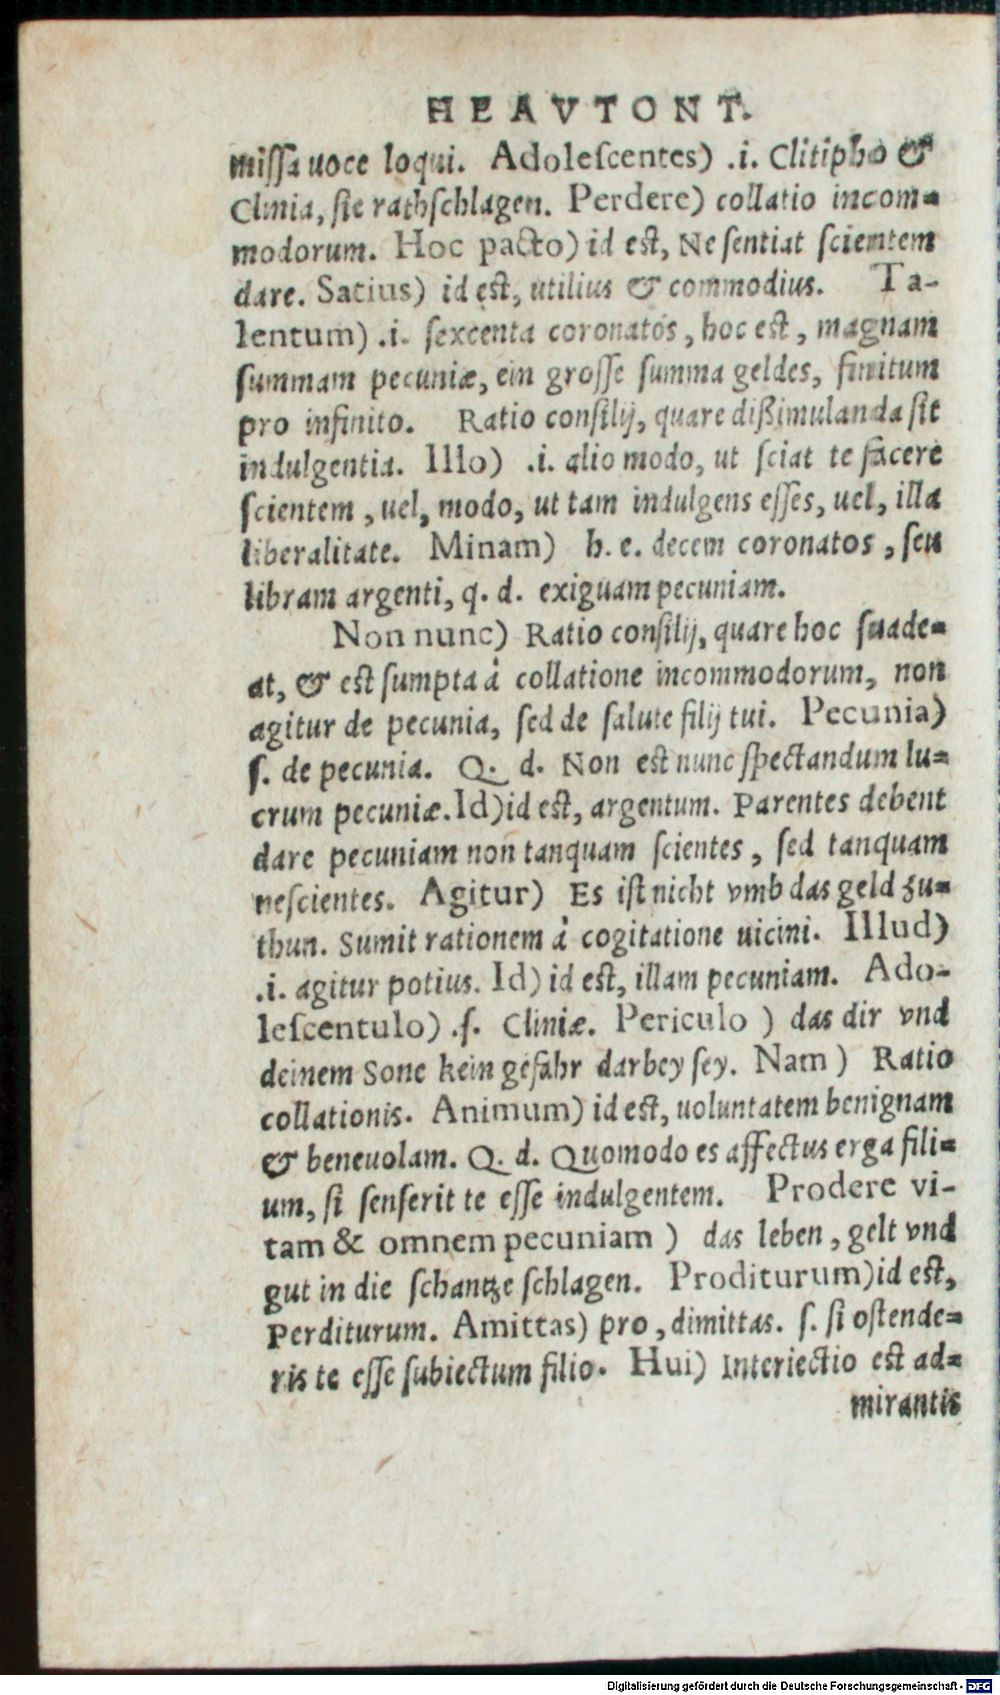 HEAVTONT.
missa uoce loqui. Adolescentes) .i. Clitipho &
Clinia, sie rathschlagen. Perdere) collatio incom=
modorum. Hoc pacto) id est, Ne sentiat scientem
dare. Satius) id est, utilius & commodius. Ta-
lentum) .i. sexcenta coronatos, hoc est, magnam
summam pecuniæ, ein grosse summa geldes, finitum
pro infinito. Ratio consilij, quare dißimulanda sit
indulgentia. Illo) .i. alio modo, ut sciat te facere
scientem, uel, modo, ut tam indulgens esses, uel, illa
liberalitate. Minam) h. e. decem coronatos, seu
libram argenti, q. d. exiguam pecuniam.
Non nunc) Ratio consilij, quare hoc suade=
at, & est sumpta à collatione incommodorum, non
agitur de pecunia, sed de salute filij tui. Pecunia)
s. de pecunia. Q. d. Non est nunc spectandum lu=
crum pecuniæ. Id) id est, argentum. Parentes debent
dare pecuniam non tanquam scientes, sed tanquam
nescientes. Agitur) Es ist nicht vmb das geld zu=
thun. Sumit rationem à cogitatione uicini. Illud)
.i. agitur potius. Id) id est, illam pecuniam. Ado-
lescentulo) .s. Cliniæ. Periculo) das dir vnd
deinem Sone kein gefahr darbey sey. Nam) Ratio
collationis. Animum) id est, uoluntatem benignam
& beneuolam. Q. d. Quomodo es affectus erga fili=
um, si senserit te esse indulgentem. Prodere vi-
tam & omnem pecuniam) das leben, gelt vnd
gut in die schantze schlagen. Proditurum) id est,
Perditurum. Amittas) pro, dimittas. s. si ostende=
ris te esse subiectum filio. Hui) Interiectio est ad=
mirantis
Digitalisierung gefördert durch die Deutsche Forschungsgemeinschaft - DFG